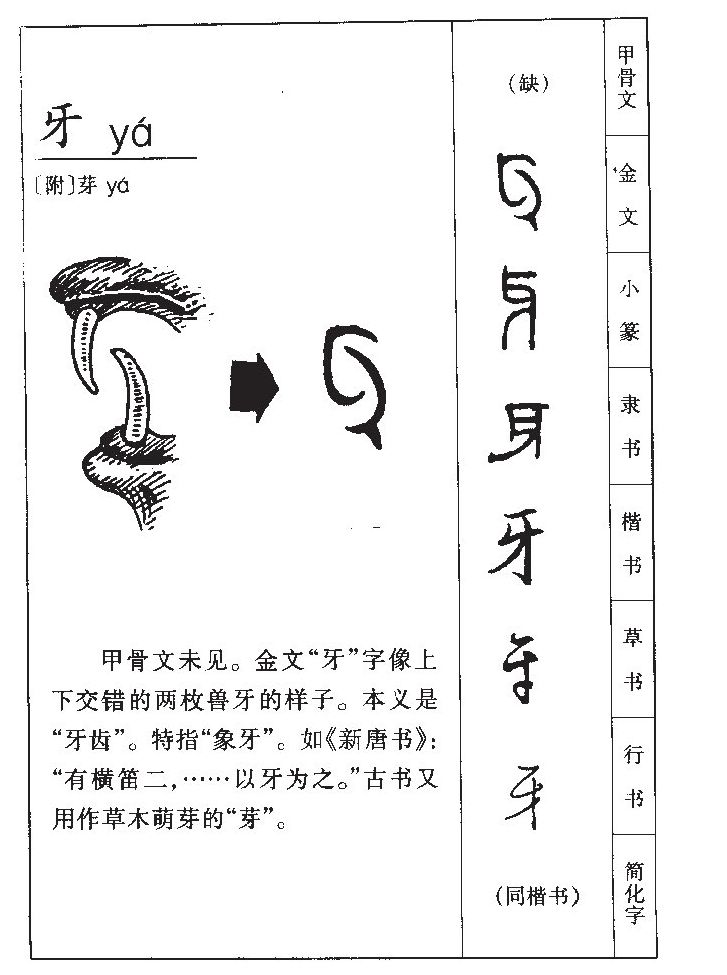 牙 yá
〔附〕芽 yá
甲骨文未见。金文“牙”字像上
下交错的两枚兽牙的样子。本义是
“牙齿”。特指“象牙”。如《新唐书》：
“有横笛二，……以牙为之。”古书又
用作草木萌芽的“芽”。
（缺）
甲骨文
牙
金文
牙
小篆
牙
隶书
牙
楷书
牙
草书
牙
行书
（同楷书）
简化字